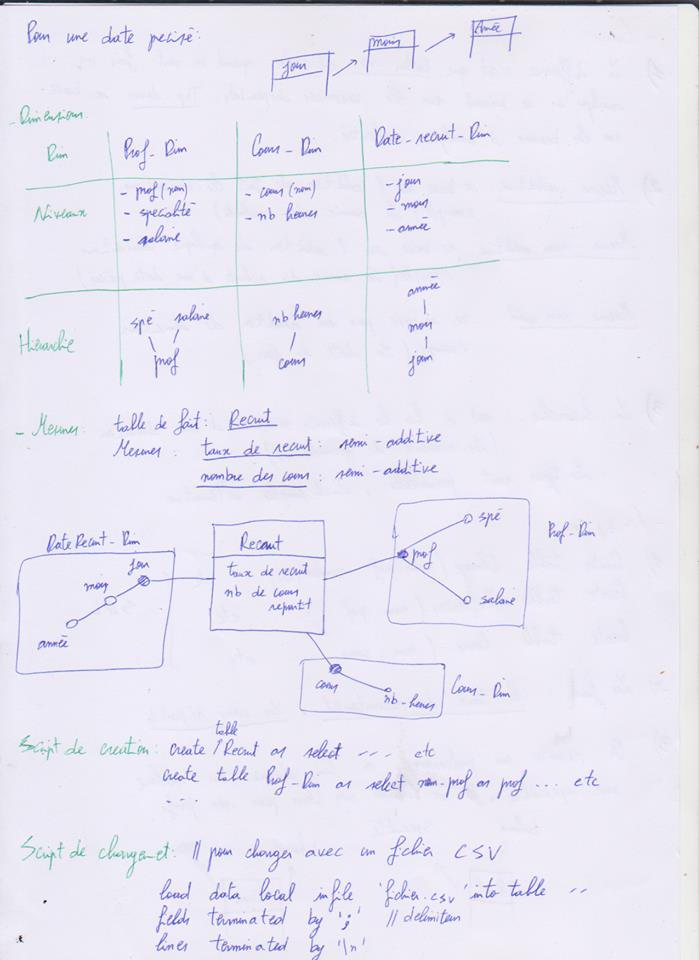 Pour une date précisé:
jour
mois
Année
- Dimensions:
Dim
Prof_Dim
Cours_Dim
Date-recrut-Dim
Niveaux
- prof (nom)
- spécialité
- salaire
- cours (nom)
- nb heures
- jour
- mois
- année
Hierarchie
spé salaire
prof
nb heures
cours
année
mois
jour
- Mesures: table de fait: Recrut
Mesures: taux de recrut: semi-additive
nombre des cours: semi-additive
DateRecrut-Dim
jour
mois
année
Recrut
taux de recrut
nb de cours
repartit
spé
prof
salaire
Prof-Dim
cours
nb-heures
Cours-Dim
Script de creation: create table Recrut as select ---- etc
create table Prof-Dim as select nom-prof as prof ... etc
- - -
Script de changemet: // pour changer avec un fichier CSV
load data local infile 'fichier.csv' into table --
fields terminated by ';' // delimiteur
lines terminated by '\n'